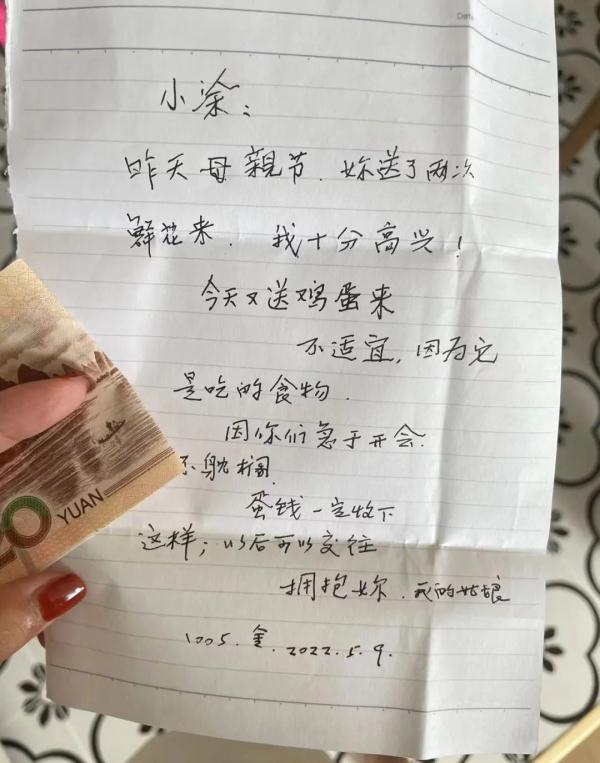 Date
小涂：
昨天母親节．妳送了两次
鲜花来．我十分高兴！
今天又送鸡蛋来
不适宜，因为它
是吃的食物．
因你们急于开会．
不耽搁．
蛋钱一定收下
这样；以后可以交往
拥抱妳．我的姑娘
1005．金．2022．5．9．
0
YUAN